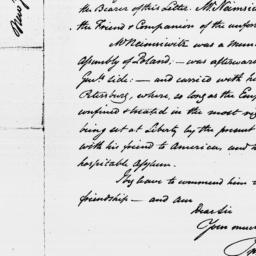 the Bearer of this Letter. Mr Neimsi
the Friend & Companion of the unfor
Mr Neimiwitz was a mem
Assembly of Poland; — was afterwar
Genl. side: — and carried with h
Petersburg, where, so long as the Em
confined & treated in the most rig
being set at Liberty by the present
with his friend to America, and
hospitable Asylum.
I by leave to commend him
friendship — and am
Dear Sir
Your mu
New